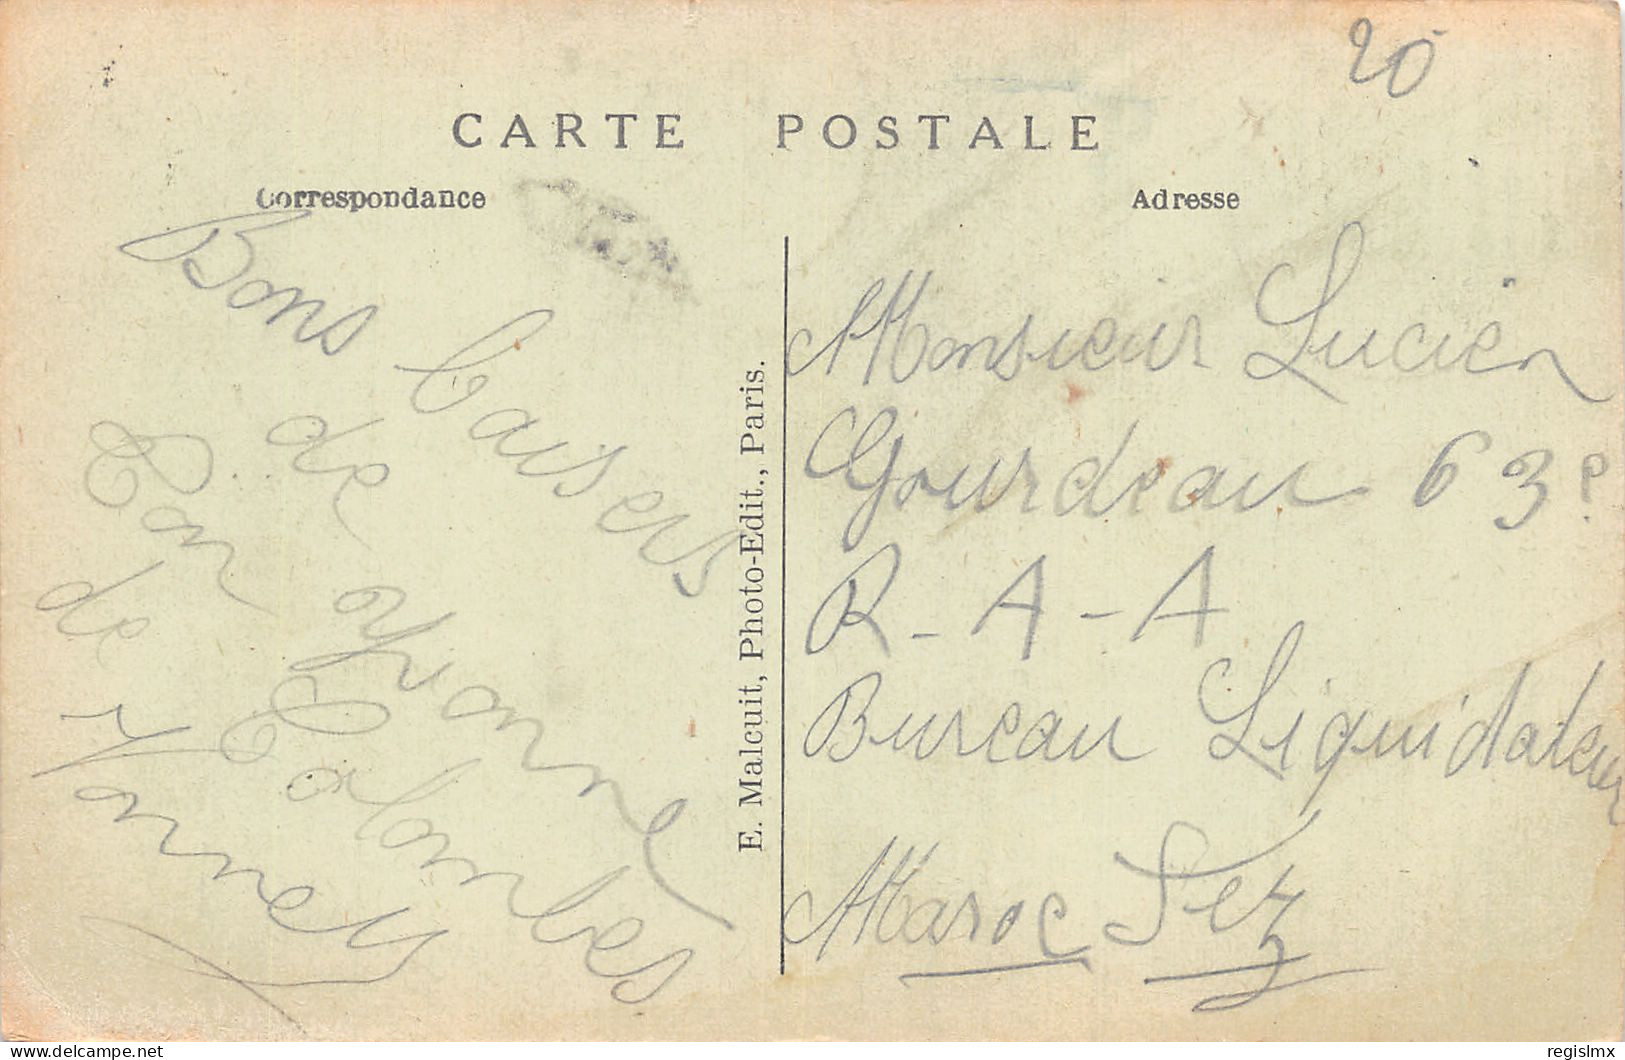 20
CARTE POSTALE
Correspondance
Adresse
Bons baisers
de
Ton Yvonne
de Colombes
Vannes
E. Malcuit, Photo-Edit., Paris.
Monsieur Lucien
Gourdeau 63e
R - A - A
Bureau Liquidateur
Maroc Fez
delcampe.net
regislmx